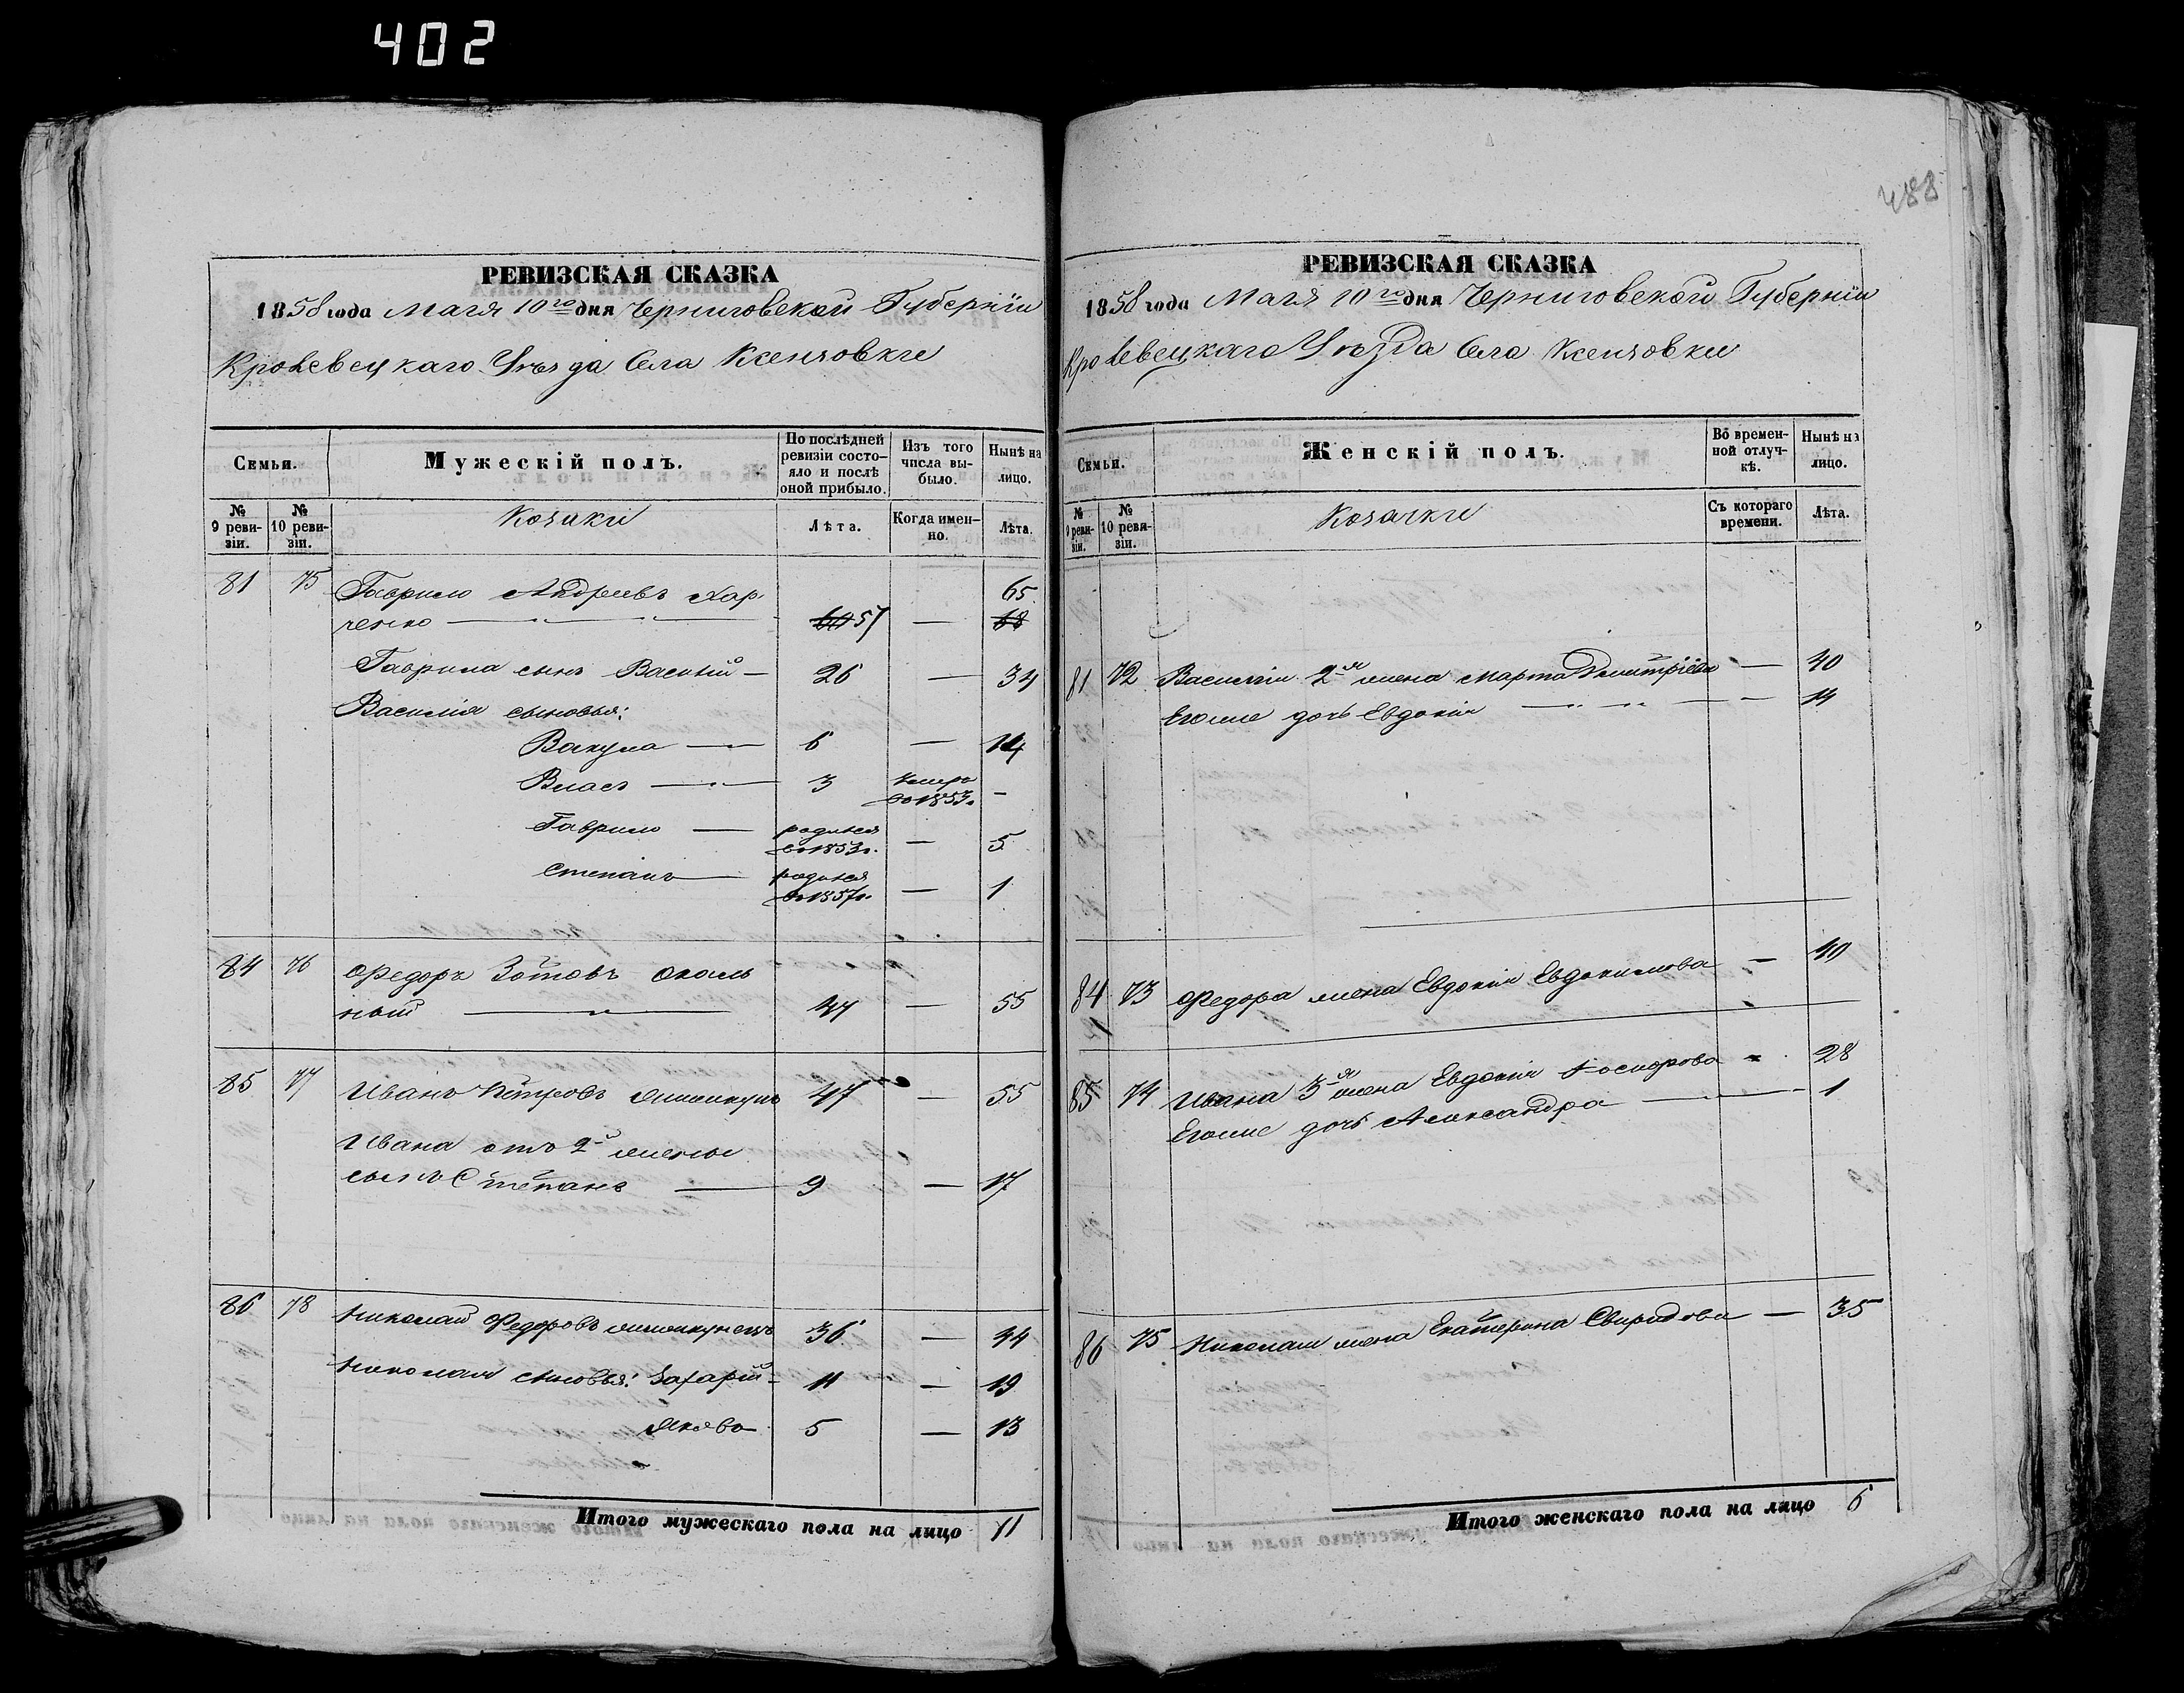 402
488
РЕВИЗСКАЯ СКАЗКА
1858 года Мая 10го дня Черниговской Губернии
Кролевецкаго Уѣзда Села Ксензовки
Семьи.
Мужескій полъ.
По послѣдней ревизіи состояло и послѣ оной прибыло.
Изъ того числа выбыло.
Нынѣ на лицо.
№ 9 ревизіи.
№ 10 ревизіи.
Козаки
Лѣта.
Когда именно.
Лѣта.
81 75 Гаврило Андреевъ Хар-
ченко 60 57 — 65 68
Гаврила сынъ Василій — 26 — 34
Василія сыновья:
Вакула — 6 — 14
Власъ — 3 умеръ въ 1853г. —
Гаврило — родился въ 1853г. — 5
Степанъ — родился въ 1857г. — 1
84 76 Федоръ Зотовъ
ный — 47 — 55
85 77 Иванъ Петровъ 47 — 55
Ивана отъ 2й жены
сынъ Степанъ — 9 — 17
86 78 Николай Федоровъ 36 — 44
Николая сыновья: Захарій — 11 — 19
Яковъ 5 — 13
Итого мужескаго пола на лицо 11
РЕВИЗСКАЯ СКАЗКА
1858 года Мая 10го дня Черниговской Губернии
Кролевецкаго Уѣзда Села Ксензовки
Семьи.
Женскій полъ.
Во временной отлучкѣ.
Нынѣ на лицо.
№ 9 ревизіи.
№ 10 ревизіи.
Козачки
Съ котораго времени.
Лѣта.
81 72 Василія 2я жена Марта Дмитріева — 40
Егоже дочь Евдокія — 14
84 73 Федора жена Евдокія Евдокимова — 40
85 74 Ивана 3я жена Евдокія — 28
Егоже дочь Александра — 1
86 75 Николая жена Екатерина Свиридова — 35
Итого женскаго пола на лицо 6